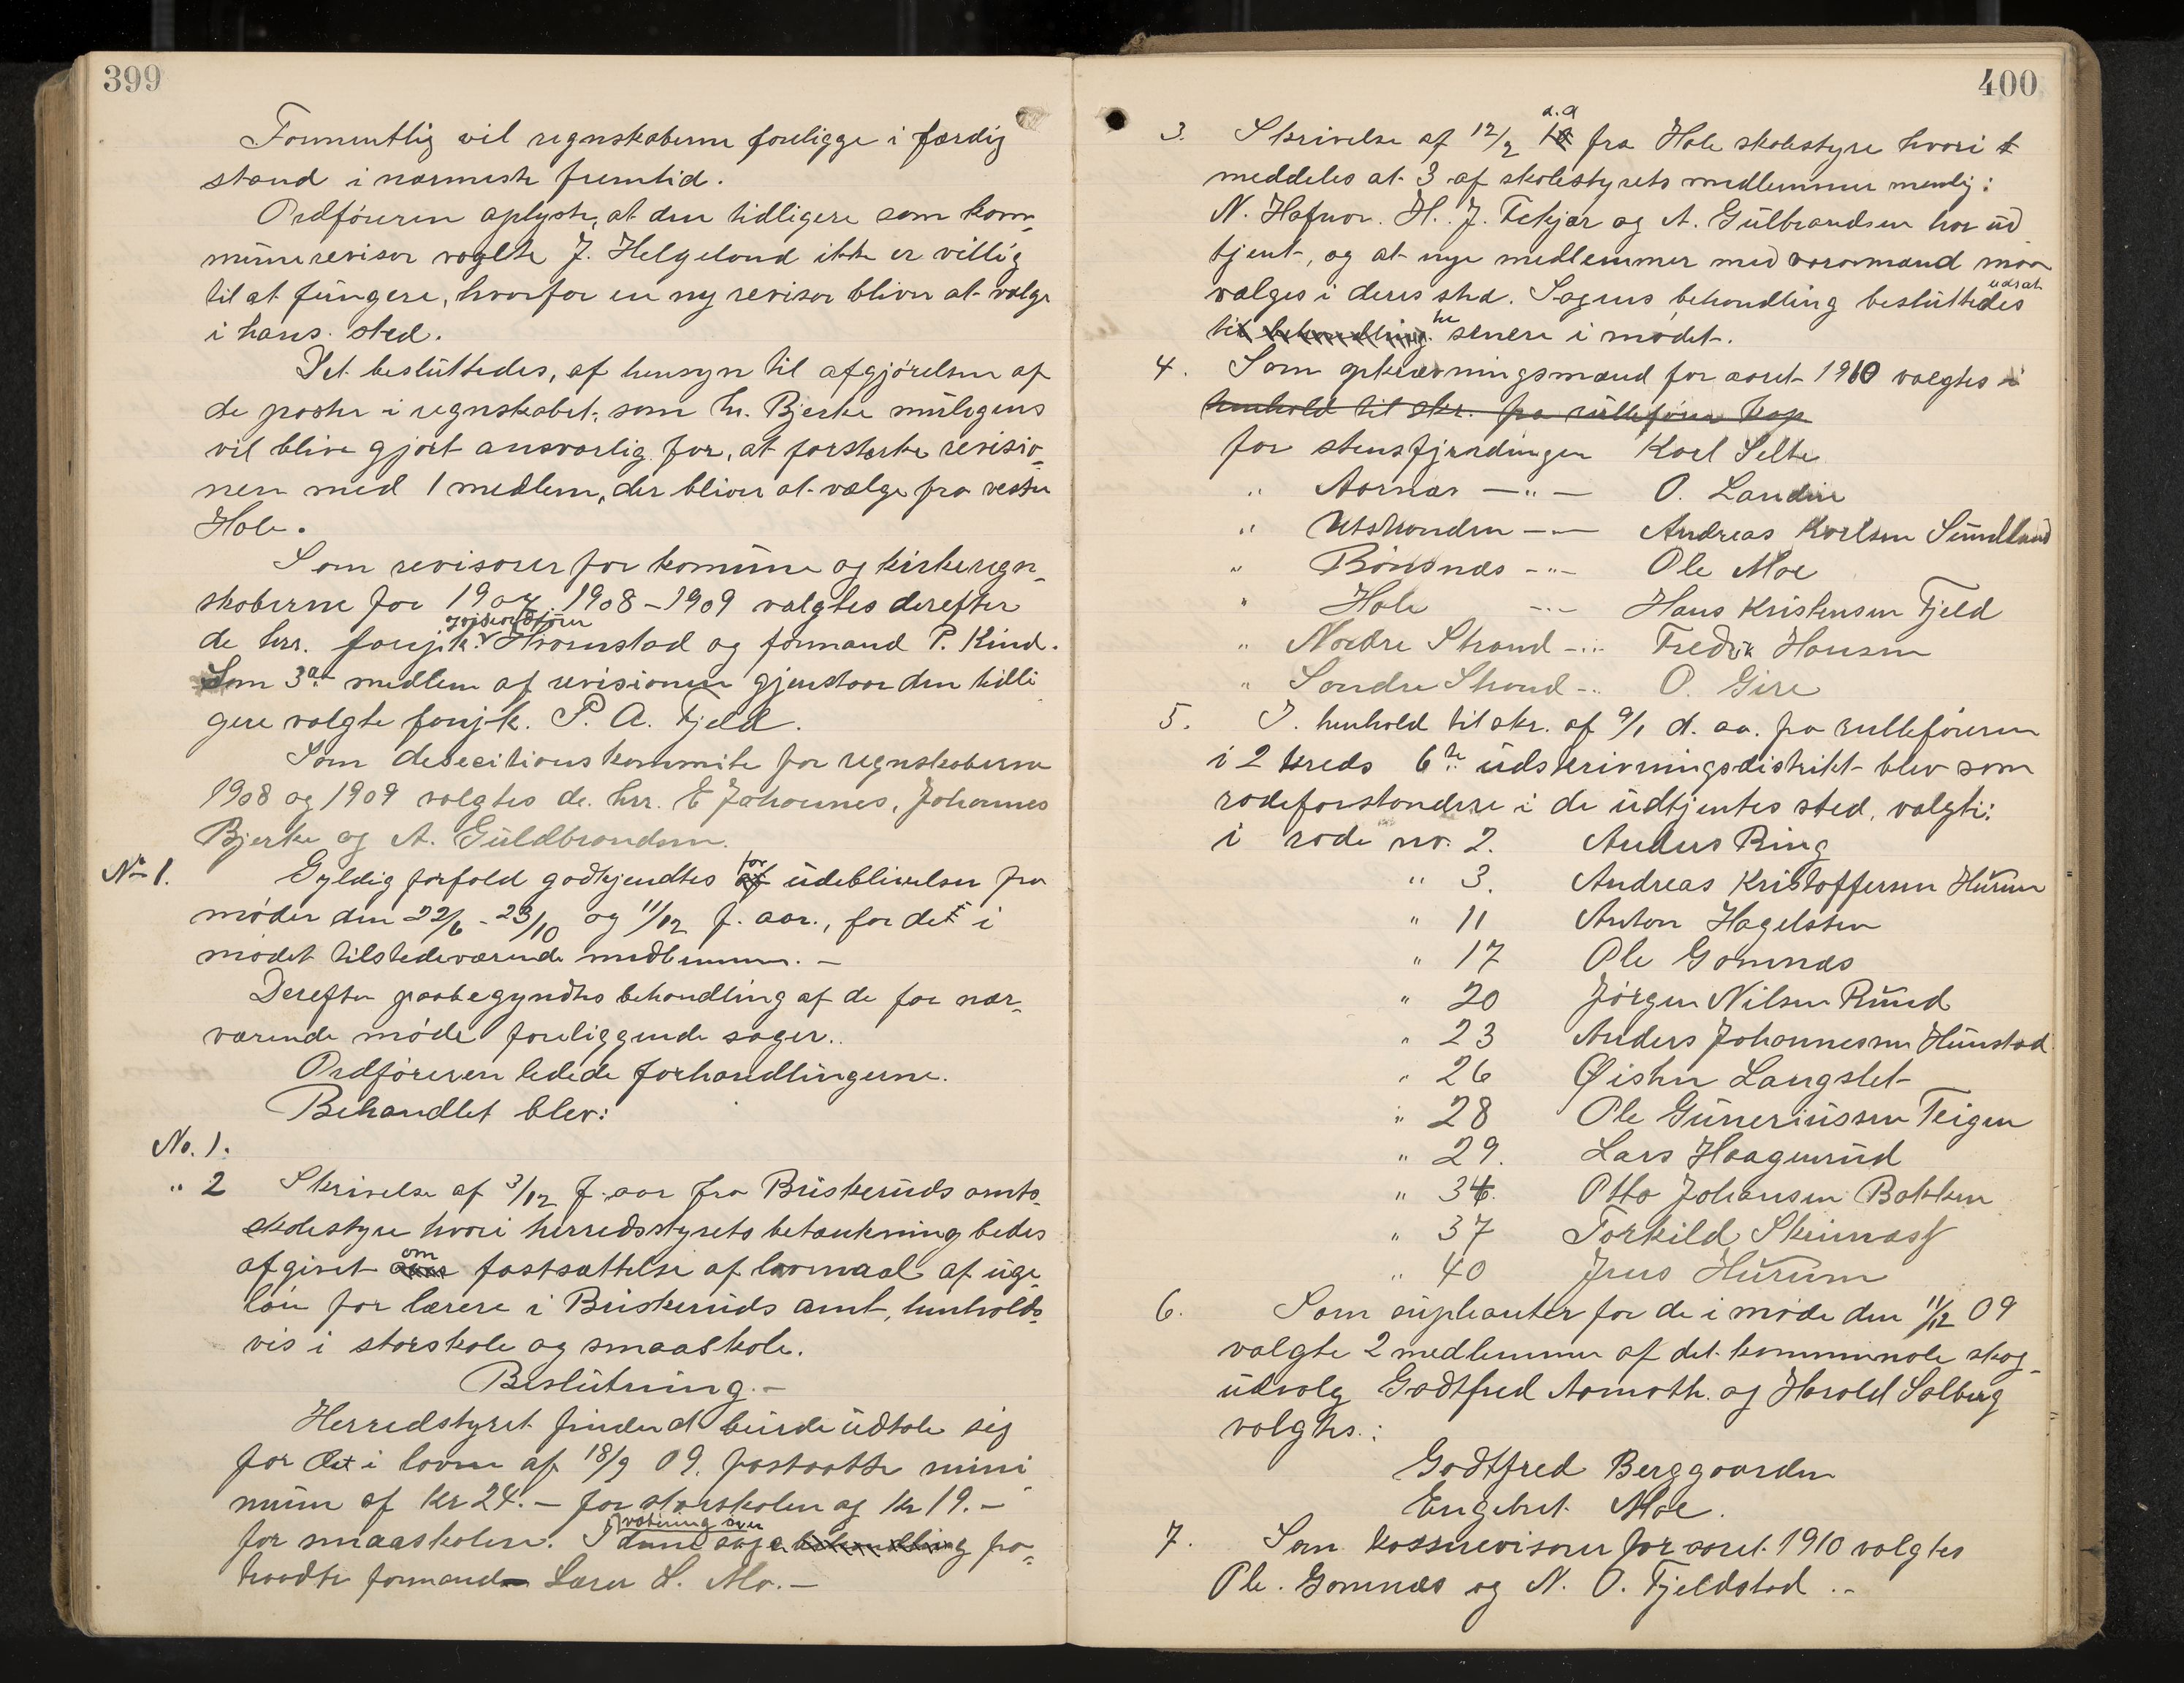 399
Formentlig vil regnskaberne foreligge i færdig
stand i nærmeste fremtid.
Ordføreren oplyste, at den tidligere som kom-
munerevisor valgte J. Helgeland ikke er villig
til at fungere, hvorfor en ny revisor bliver at vælge
i hans sted.
Det besluttedes, af hensyn til afgjørelsen af
de poster i regnskabet, som hr. Bjerke muligens
vil blive gjort ansvarlig for, at forsterke revisio-
nen med 1 medlem, der bliver at vælge fra vestre
Hole.
Som revisorer for komune og kirkeregn-
skaberne for 1907 1908-1909 valgtes derefter
de hrr. forijk. Hvornstad og formand P. Rind.
Som 3die medlem af revisionen gjenstaar den tidli
gere valgte forijk. P. A. Fjeld.
Som dececitionskommite for regnskaberne
1908 og 1909 valgtes de. hrr. E Johannes, Johannes
Bjerke og A. Guldbrandsen.
No 1. Gyldig forfald godkjendtes for udeblivelsen fra
møder den 22/6 - 23/10 og 11/12 f. aar., for de i
mødet tilstedeværende medlemmer. -
Derefter paabegyndtes behandling af de for nær-
værende møde foreliggende sager.
Ordføreren ledede forhandlingerne.
Behandlet blev:
No. 1.
" 2 Skrivelse af 3/12 f. aar fra Buskeruds amts-
skolestyre hvori herredsstyrets betænkning bedes
afgivet om fastsættelse af lavmaal af uge-
løn for lærere i Buskeruds amt, henholds-
vis i storskole og smaaskole.
Beslutning.-
Herredstyret finder at burde udtale sig
for det i loven af 18/9 09. fastsatte mini
mum af Kr 24.- for storskolen og Kr 19.-
for smaaskolen. I denne sags behandling fra-
traadte formand Lærer L. Mo.-
400
3. Skrivelse af 12/2 d.a fra Hole skolestyre hvori
meddeles at 3 af skolestyrets medlemmer nemlig:
N. Hafnor. H. J. Fekjær og A. Gulbrandsen har ud
tjent, og at nye medlemmer med varamænd maa
vælges i deres sted. Sagens behandling besluttedes udsat
til behandling senere i mødet.
4. Som opkrævningsmænd for aaret 1910 valgtes i
henhold til skr. fra rulleføren kap
for stensfjerdingen Karl Selte
" Aarnæs -"- O. Landire
" Utstranden -"- Andreas Karlsen Sundland
" Bönsnæs -"- Ole Moe
" Hole -"- Hans Kristensen Fjeld
" Nordre Strand -"- Fredrik Hansen
" Søndre Strand -"- O. Gire
5. I henhold til skr. af 9/1 d. aa. fra rulleføreren
i 2 kreds 6te udskrivningsdistrikt blev som
rodeforstandere i de udtjentes sted, valgt:
i rode no. 2. Anders Ring
" 3. Andreas Kristoffersen Hurum
" 11 Anton Hagelsten
" 17 Ole Gomnæs
" 20 Jørgen Nilsen Ruud
" 23 Anders Johannesen Hunstad
" 26 Øisten Langslet
" 28 Ole Guneriussen Teigen
" 29. Lars Haagenrud
" 34. Otto Johansen Bakken
" 37 Torkild Skeinæs
" 40 Jens Hurum
6. Som supleanter for de i møde den 11/12 09
valgte 2 medlemmer af det kommunale skog-
udvalg Godtfred Aamoth. og Harald Solberg
valgtes.:
Godtfred Berggaarden
Engebret Moe.
7. Som kasserevisorer for aaret 1910 valgtes
Ole. Gomnæs og N. O. Fjeldstad.-